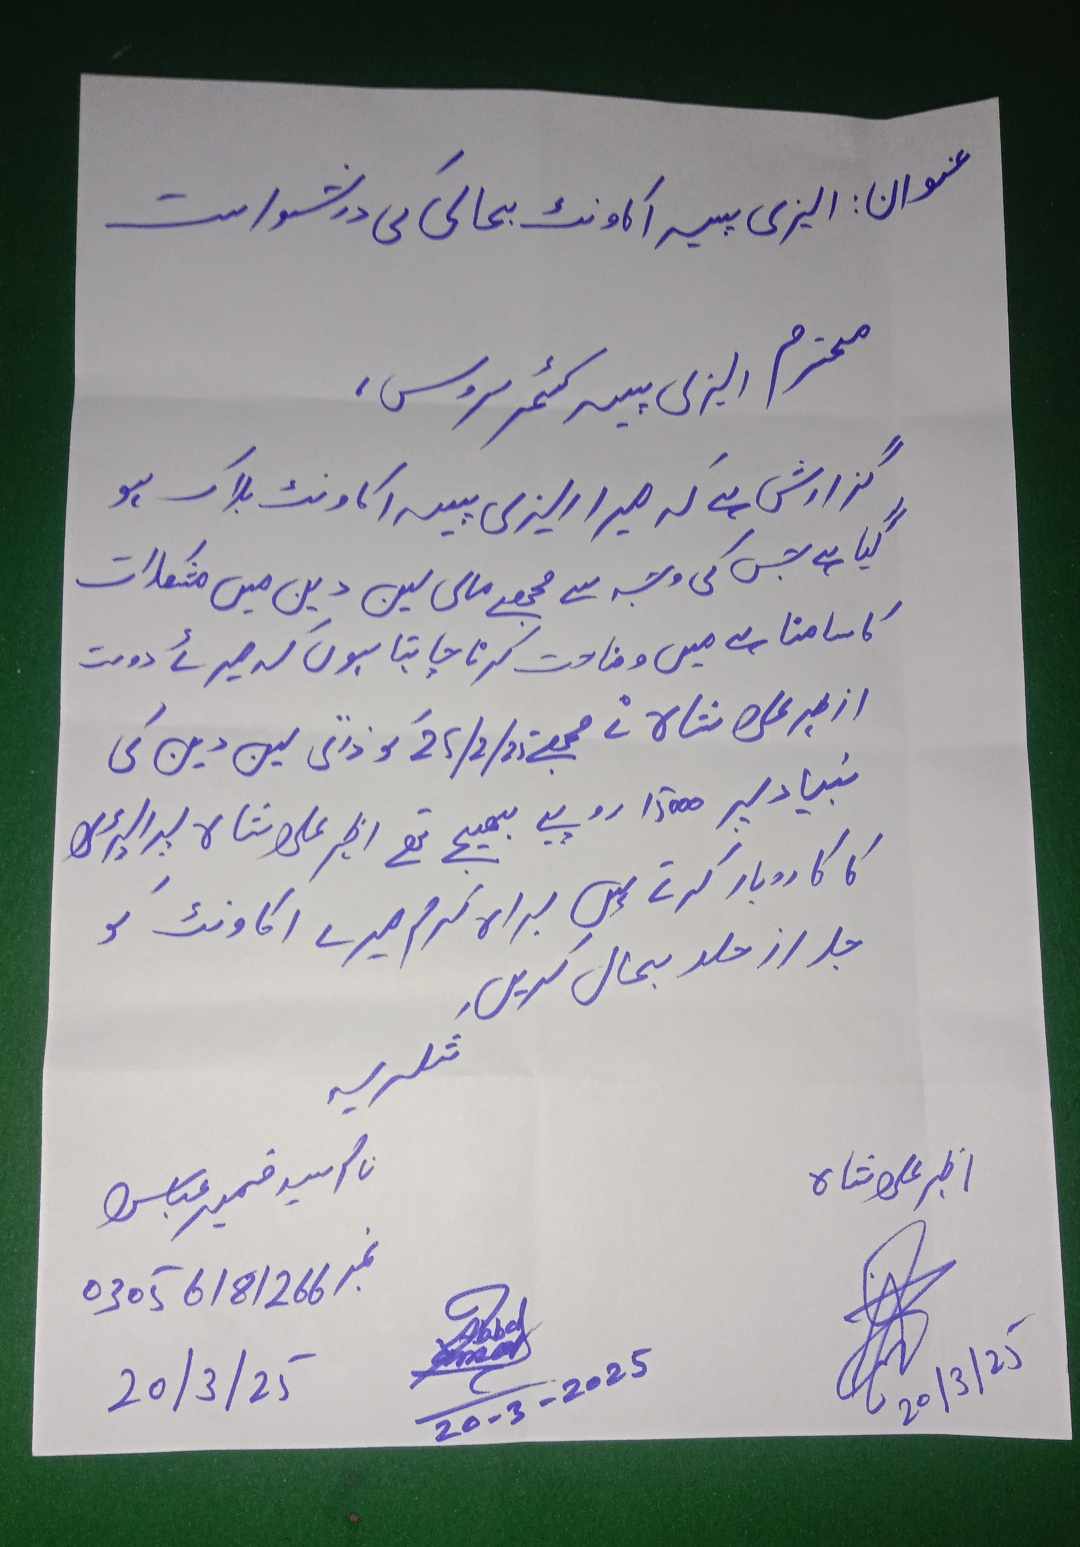 عنوان: ایزی پیسہ اکاونٹ بحالی کی درخواست
محترم ایزی پیسہ کسٹمر سروس،
گزارش ہے کہ میرا ایزی پیسہ اکاونٹ بلاک ہو
گیا ہے جس کی وجہ سے مجھے مالی لین دین میں مشکلات
کا سامنا ہے میں وضاحت کرنا چاہتا ہوں کہ میرے دوست
اظہر علی شاہ نے مجھے 25/2/25 کو ذاتی لین دین کی
بنیاد پر 15000 روپے بھیجے تھے اظہر علی شاہ پراپرٹی
کا کاروبار کرتے ہیں براہ کرم میرے اکاونٹ کو
جلد از جلد بحال کریں
شکریہ
اظہر علی شاہ
نام سید ضمیر عباس
نمبر 0305 6181266
20/3/25
20-3-2025
20/3/25